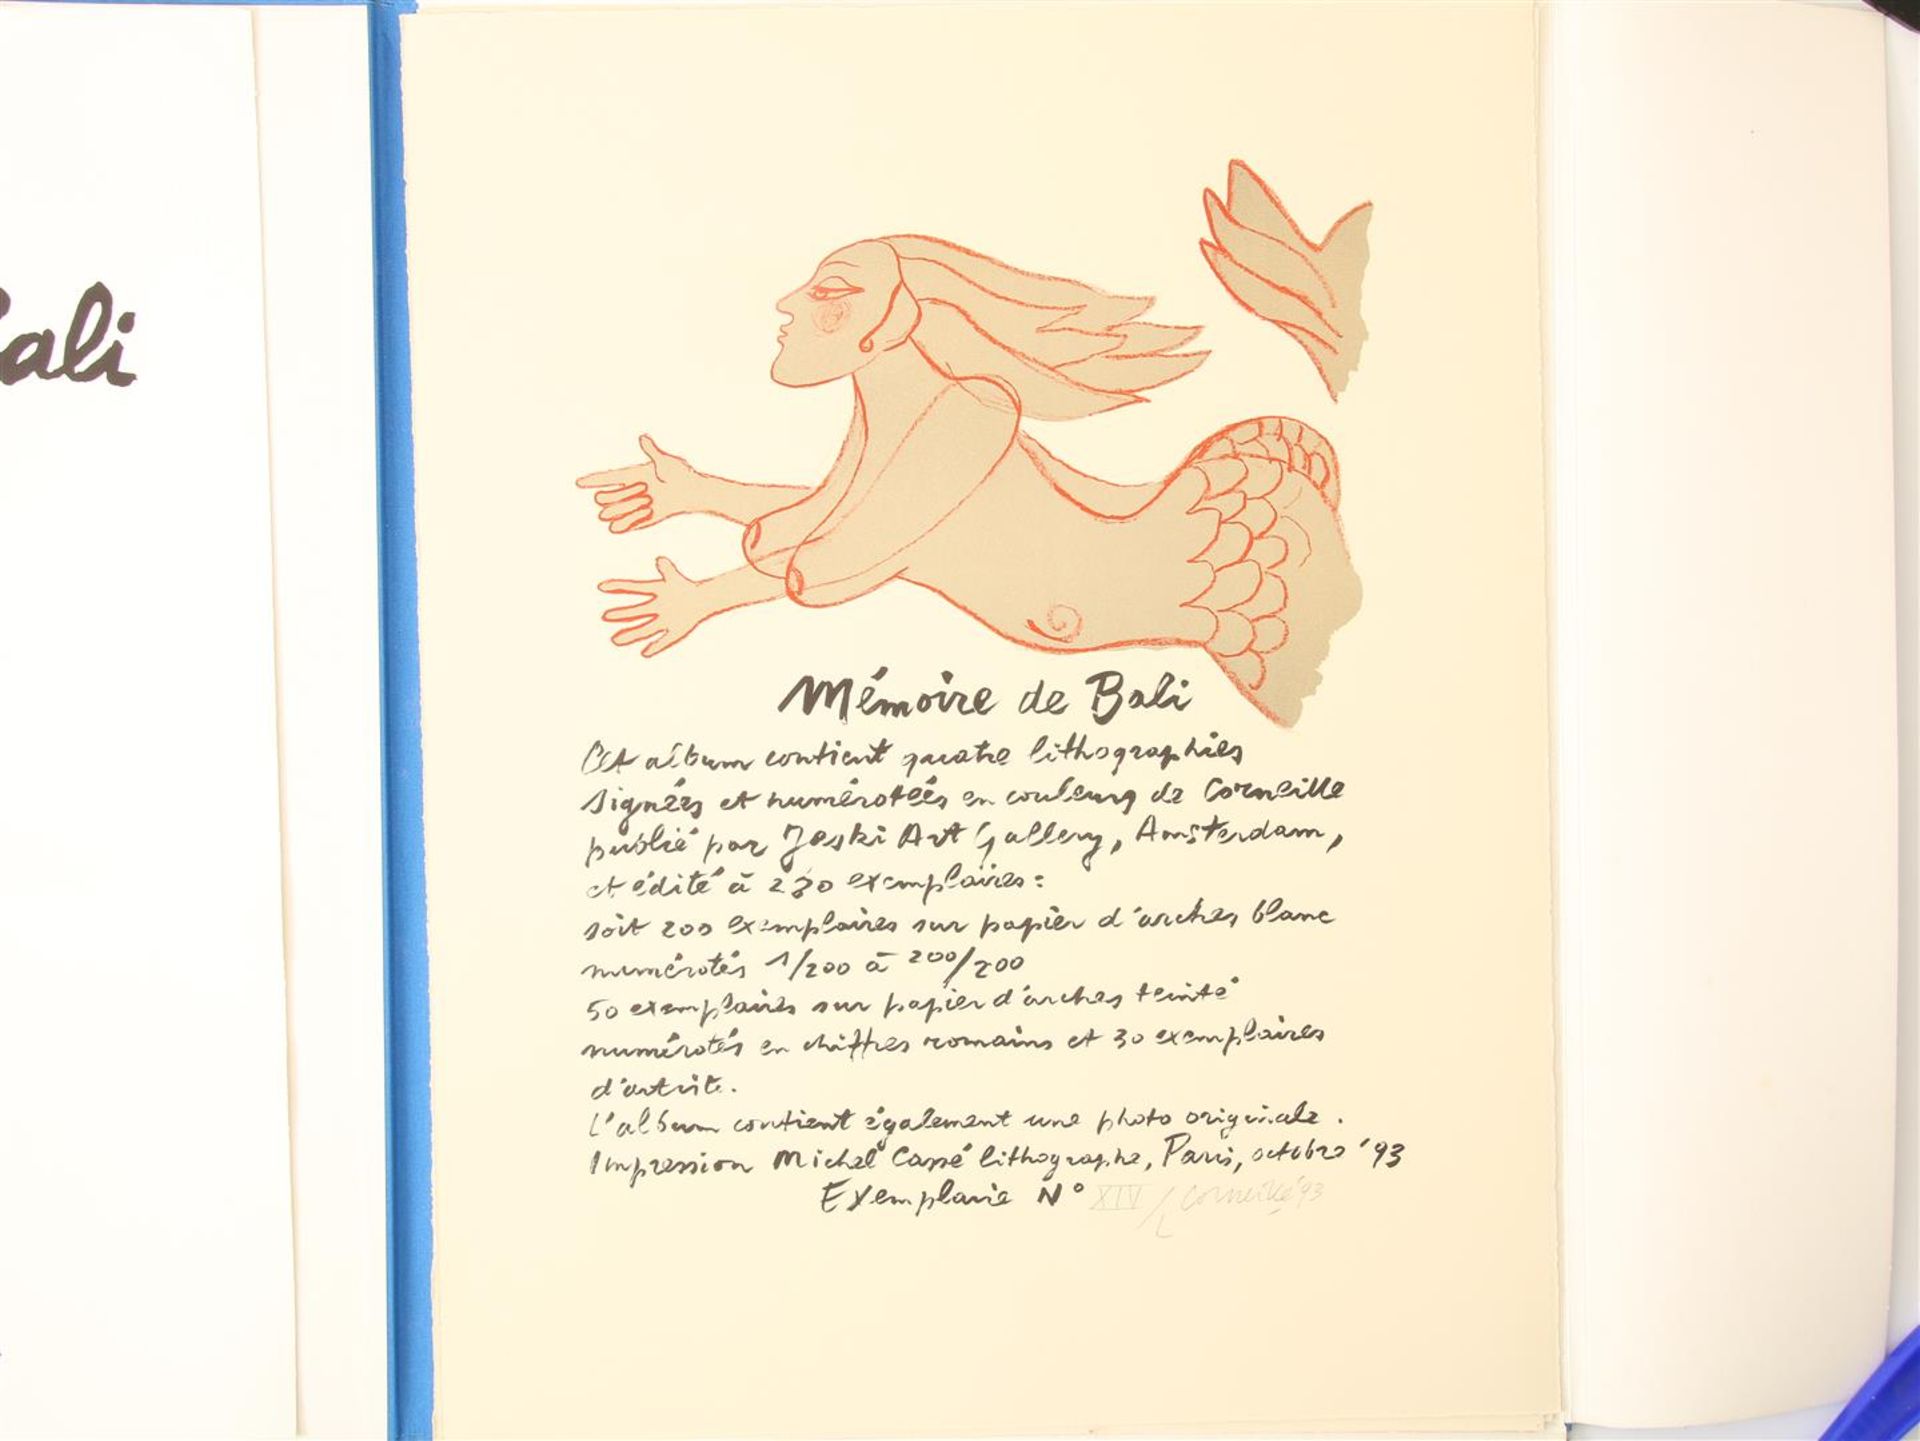 ali
Mémoire de Bali
Cet album contient quatre lithographies
signées et numérotées en couleurs de Corneille
publié par Jeski Art Gallery, Amsterdam,
et édité à 280 exemplaires:
soit 200 exemplaires sur papier d'arches blanc
numérotés 1/200 à 200/200
50 exemplaires sur papier d'arches teinté
numérotés en chiffres romains et 30 exemplaires
d'artiste.
L'album contient également une photo originale.
Impression Michel Cassé lithographe, Paris, octobre '93
Exemplaire N° XIV/L Corneille '93